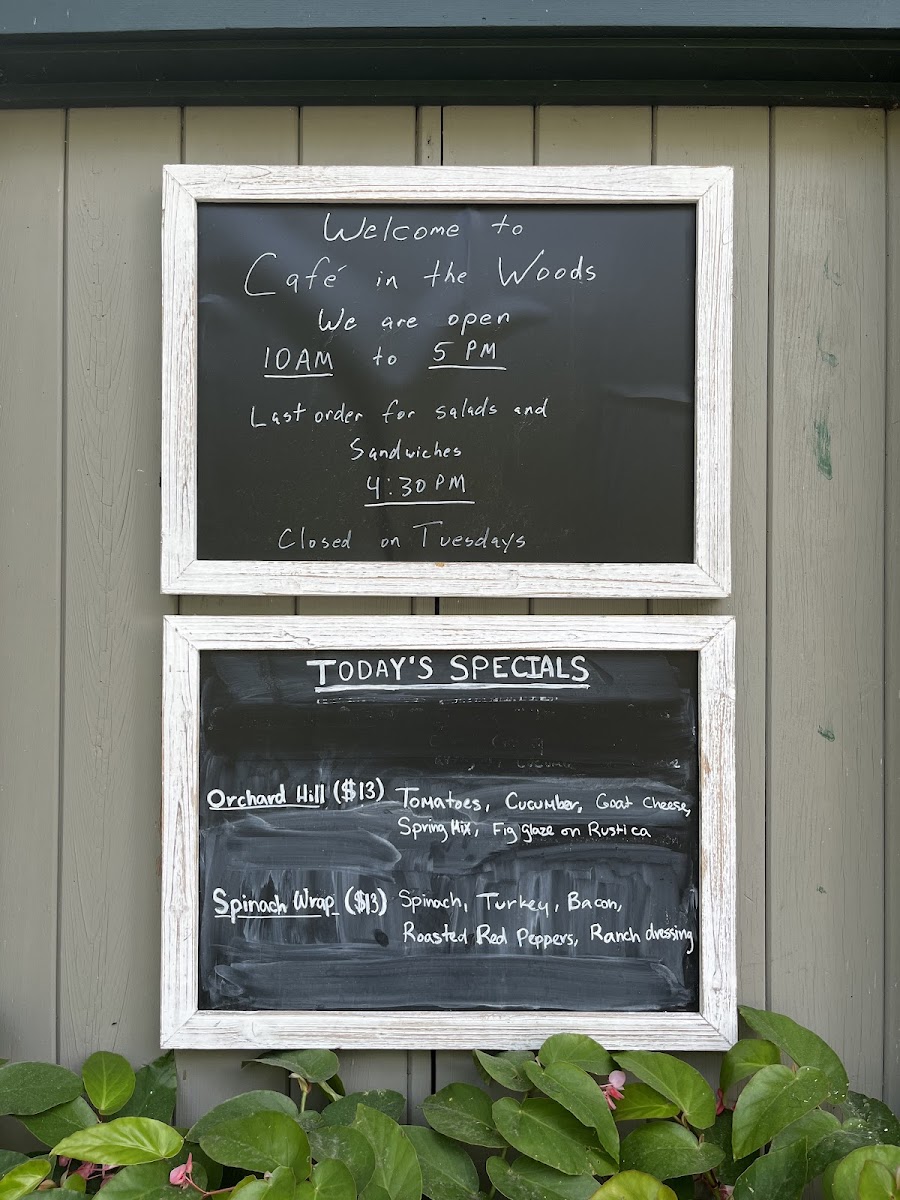 Welcome to
Café in the Woods
We are open
10AM to 5 PM
Last order for salads and
Sandwiches
4:30 PM
Closed on Tuesdays
TODAY'S SPECIALS
Orchard Hill ($13) Tomatoes, Cucumber, Goat Cheese,
Spring Mix, Fig glaze on Rustica
Spinach Wrap ($13) Spinach, Turkey, Bacon,
Roasted Red Peppers, Ranch dressing